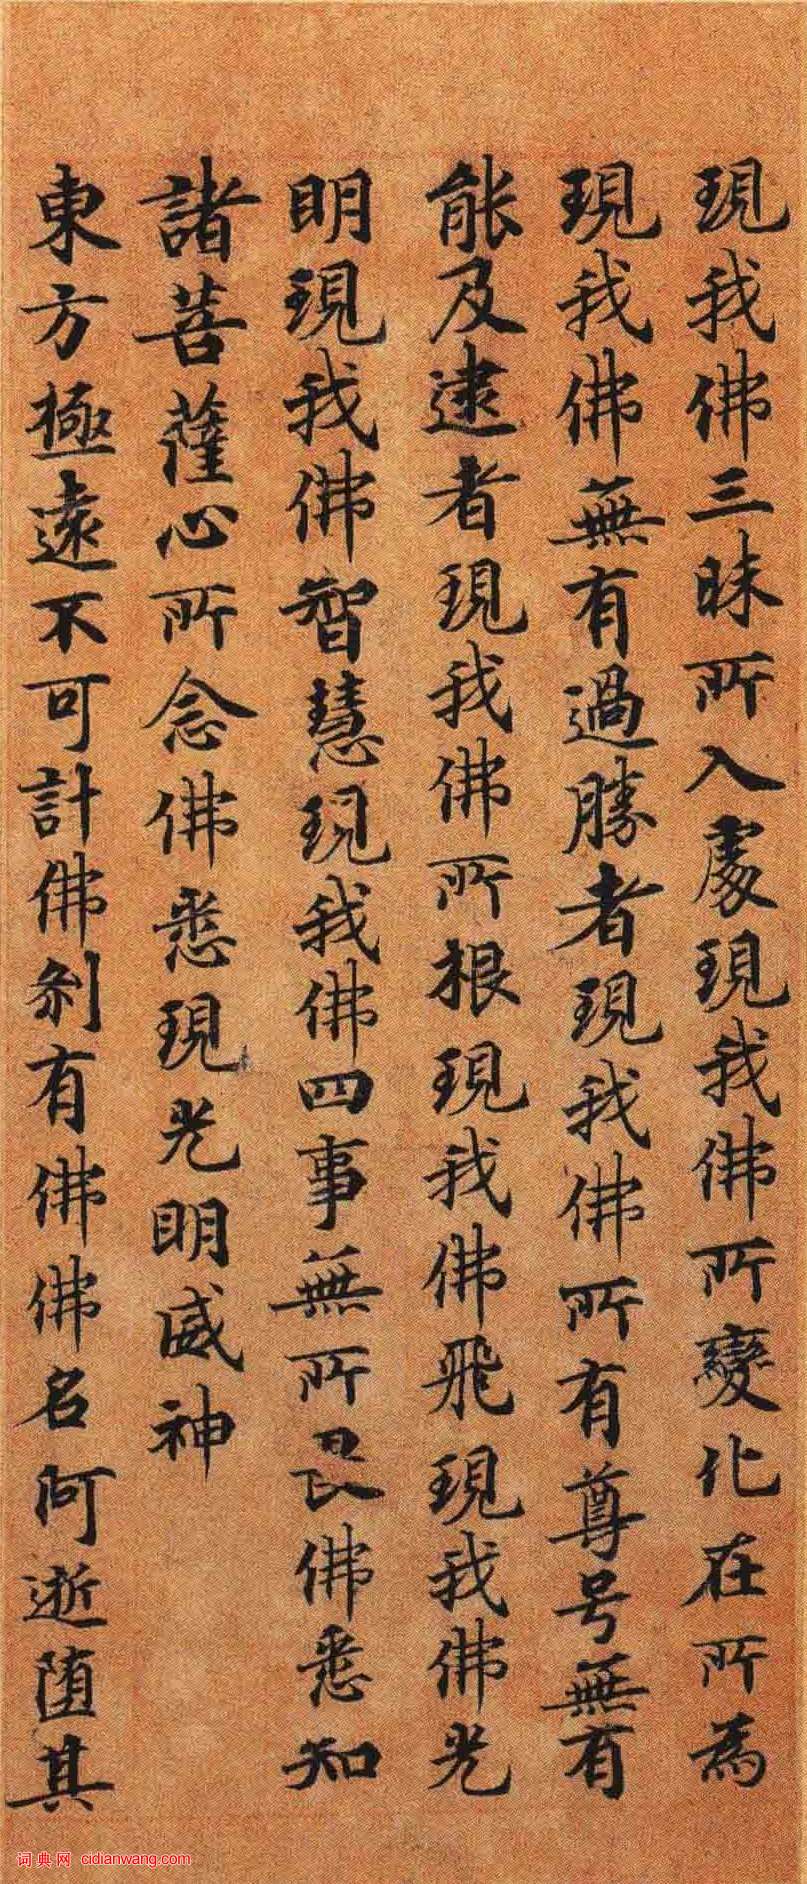 現我佛三昧所入處現我佛所變化在所為
現我佛無有過勝者現我佛所有尊号無有
能及逮者現我佛所根現我佛飛現我佛光
明現我佛智慧現我佛四事無所畏佛悉知
諸菩薩心所念佛悉現光明威神
東方極遠不可計佛剎有佛佛名阿逝墮其
词典网 cidianwang.com